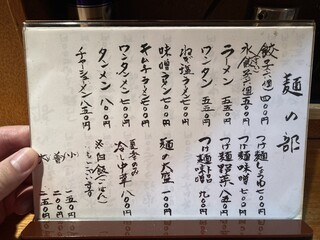 麺の部
餃子(六個) 四〇〇円
水餃子(六個) 五〇〇円
ラーメン 五五〇円
ワンタン 五五〇円
ねぎ塩ラーメン 七〇〇円
味噌ラーメン 七〇〇円
キムチラーメン 七〇〇円
ワンタンメン 七〇〇円
タンメン 八〇〇円
チャーシューメン 八五〇円
つけ麺しょうゆ 七〇〇円
つけ麺味噌 七〇〇円
つけ麺野菜 八五〇円
つけ麺味噌 九〇〇円
麺の大盛 一〇〇円
夏季のみ
冷し中華 八〇〇円
※白飯(ごはん)
もございます
小 一五〇円
普 二〇〇円
大 二五〇円